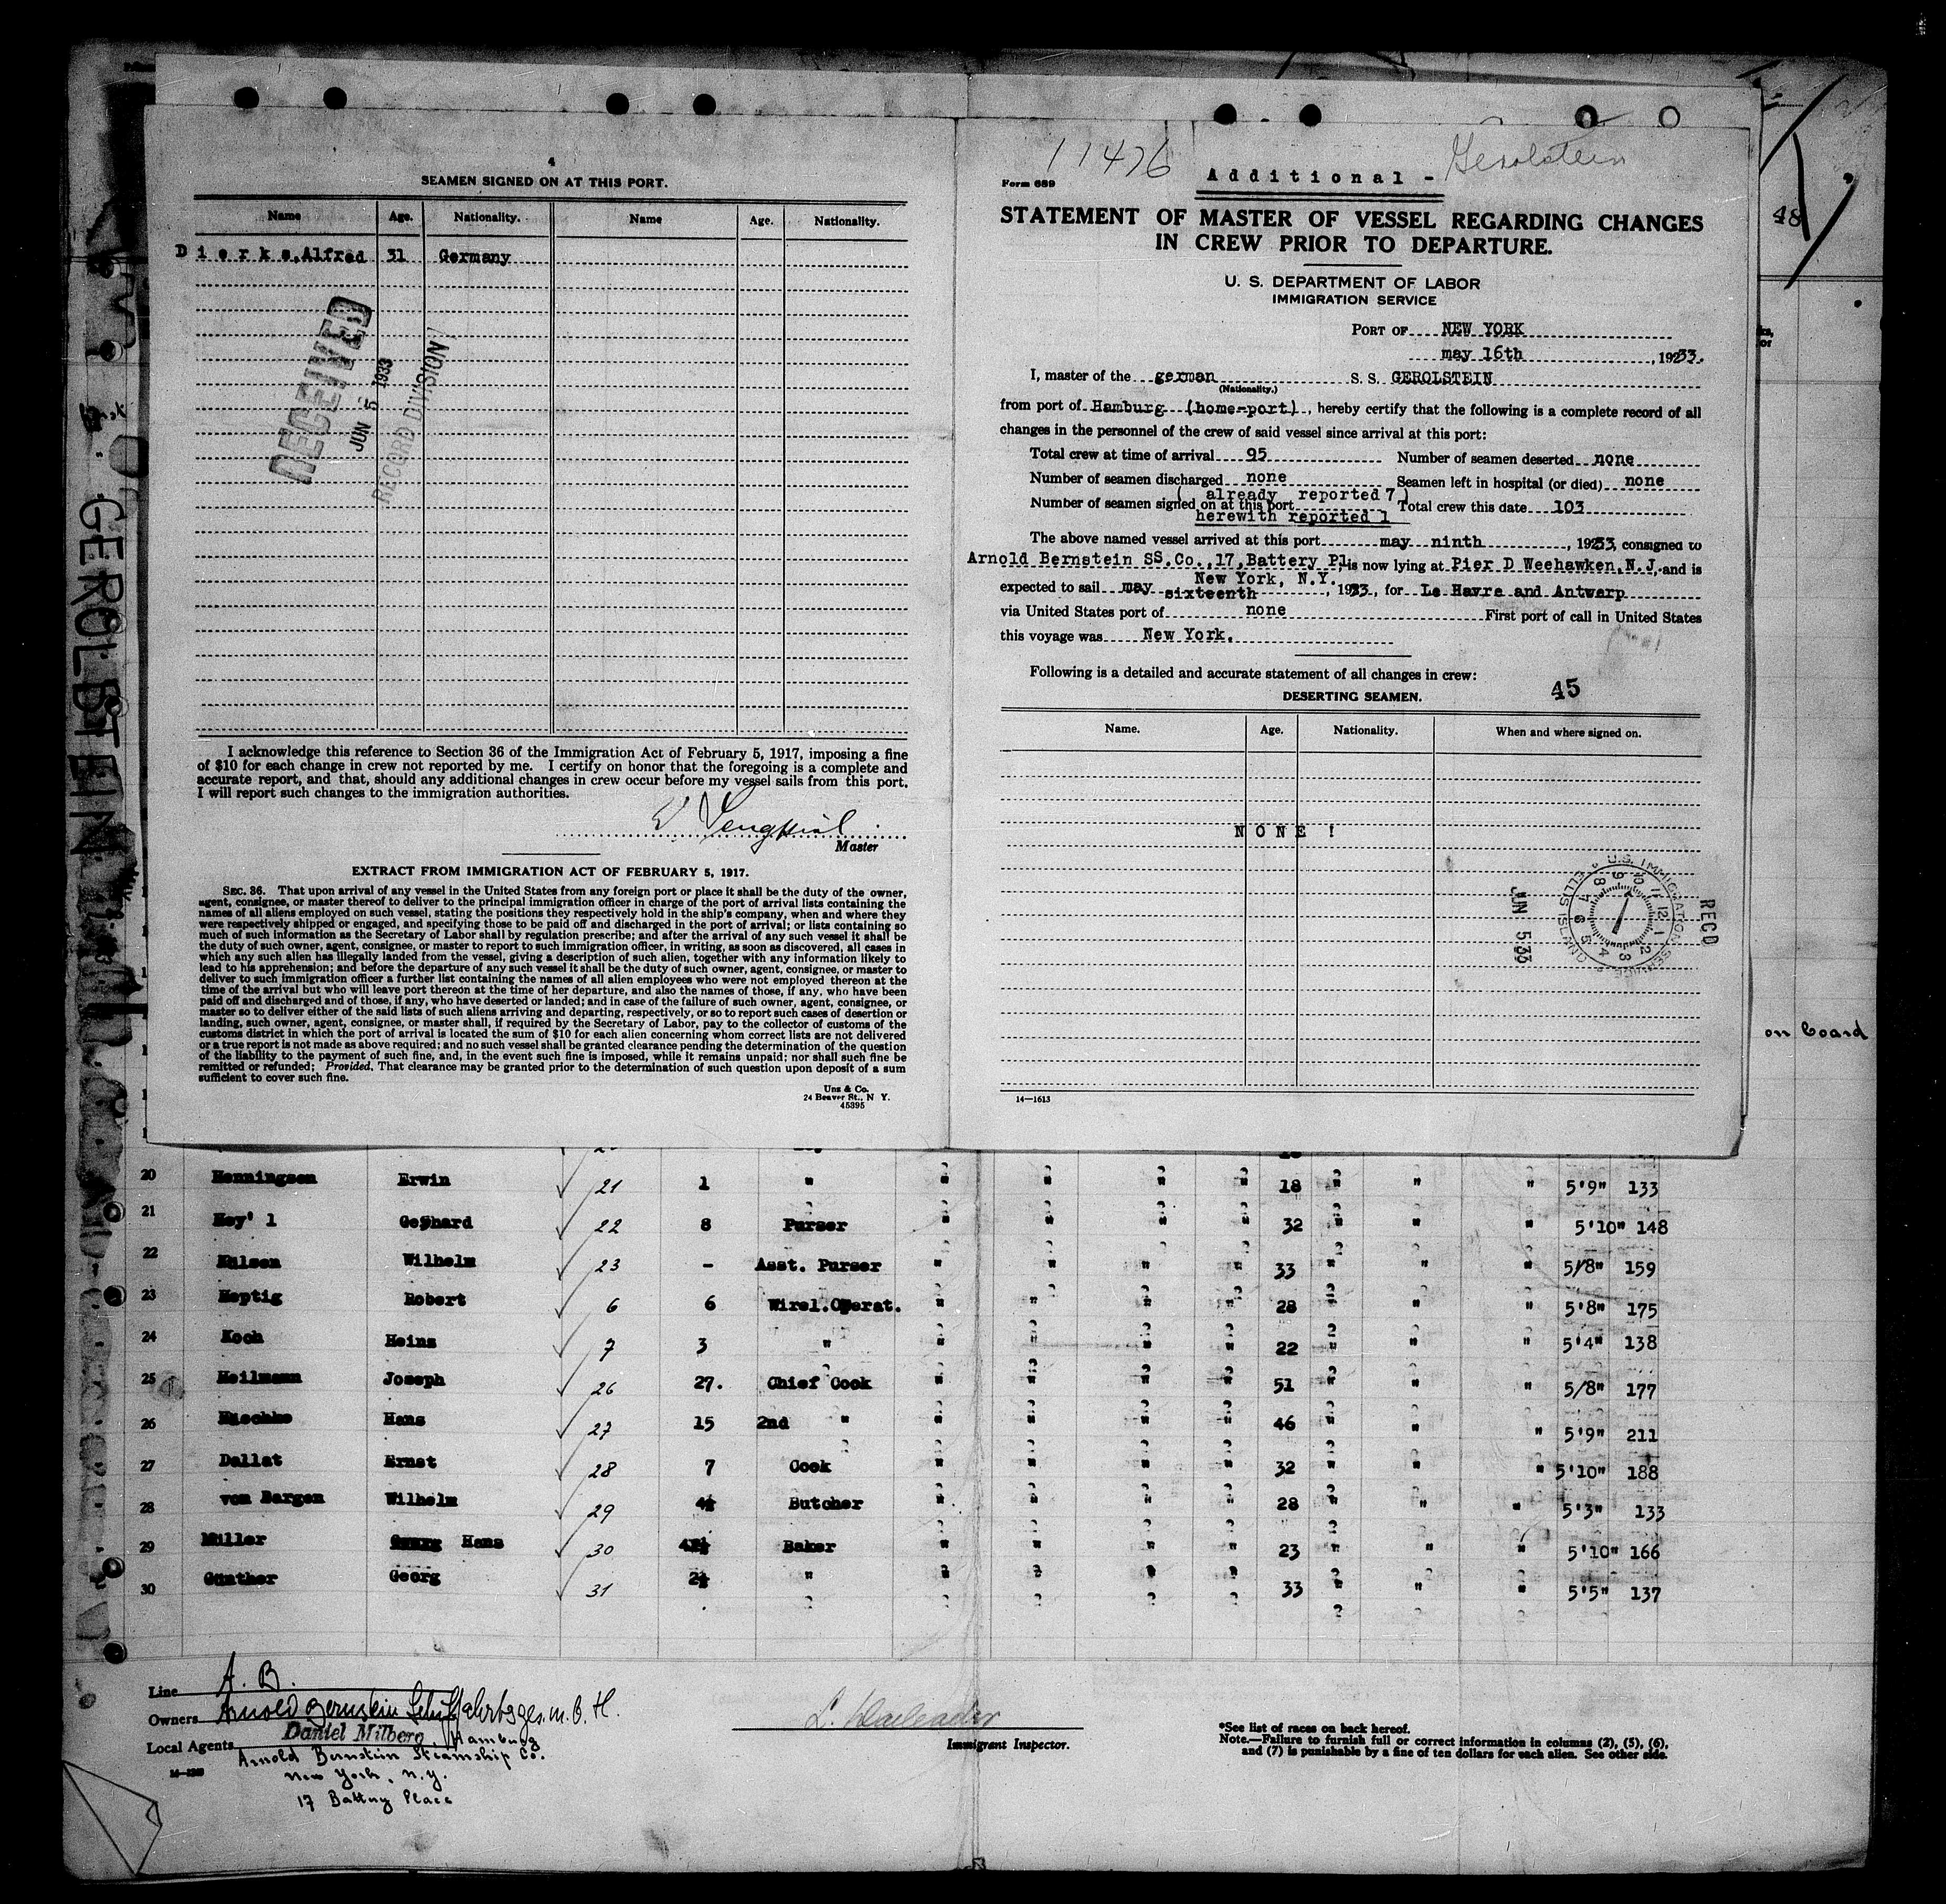 4
SEAMEN SIGNED ON AT THIS PORT.
Name Age. Nationality. Name Age. Nationality.
Dierks,Alfred 31 Germany
RECEIVED
JUN 5 1933
RECORD DIVISION
I acknowledge this reference to Section 36 of the Immigration Act of February 5, 1917, imposing a fine
of $10 for each change in crew not reported by me. I certify on honor that the foregoing is a complete and
accurate report, and that, should any additional changes in crew occur before my vessel sails from this port,
I will report such changes to the immigration authorities.
Master
EXTRACT FROM IMMIGRATION ACT OF FEBRUARY 5, 1917.
SEC. 36. That upon arrival of any vessel in the United States from any foreign port or place it shall be the duty of the owner,
agent, consignee, or master thereof to deliver to the principal immigration officer in charge of the port of arrival lists containing the
names of all aliens employed on such vessel, stating the positions they respectively hold in the ship's company, when and where they
were respectively shipped or engaged, and specifying those to be paid off and discharged in the port of arrival; or lists containing so
much of such information as the Secretary of Labor shall by regulation prescribe; and after the arrival of any such vessel it shall be
the duty of such owner, agent, consignee, or master to report to such immigration officer, in writing, as soon as discovered, all cases in
which any such alien has illegally landed from the vessel, giving a description of such alien, together with any information likely to
lead to his apprehension; and before the departure of any such vessel it shall be the duty of such owner, agent, consignee, or master to
deliver to such immigration officer a further list containing the names of all alien employees who were not employed thereon at the
time of the arrival but who will leave port thereon at the time of her departure, and also the names of those, if any, who have been
paid off and discharged and of those, if any, who have deserted or landed; and in case of the failure of such owner, agent, consignee, or
master so to deliver either of the said lists of such aliens arriving and departing, respectively, or so to report such cases of desertion or
landing, such owner, agent, consignee, or master shall, if required by the Secretary of Labor, pay to the collector of customs of the
customs district in which the port of arrival is located the sum of $10 for each alien concerning whom correct lists are not delivered
or a true report is not made as above required; and no such vessel shall be granted clearance pending the determination of the question
of the liability to the payment of such fine, and, in the event such fine is imposed, while it remains unpaid; nor shall such fine be
remitted or refunded: Provided, That clearance may be granted prior to the determination of such question upon deposit of a sum
sufficient to cover such fine.
Unz & Co.
24 Beaver St., N Y.
45395
11476 Additional - Gerolstein
Form 689
STATEMENT OF MASTER OF VESSEL REGARDING CHANGES
IN CREW PRIOR TO DEPARTURE.
U. S. DEPARTMENT OF LABOR
IMMIGRATION SERVICE
PORT OF NEW YORK
may 16th, 1933.
I, master of the german S. S. GEROLSTEIN
(Nationality.)
from port of Hamburg (home-port), hereby certify that the following is a complete record of all
changes in the personnel of the crew of said vessel since arrival at this port:
Total crew at time of arrival 95 Number of seamen deserted none
Number of seamen discharged none Seamen left in hospital (or died) none
( already reported 7 )
Number of seamen signed on at this port Total crew this date 103
herewith reported 1
The above named vessel arrived at this port may ninth, 1933, consigned to
Arnold Bernstein SS.Co.,17,Battery Pl, is now lying at Pier D Weehawken,N.J. and is
New York, N.Y.
expected to sail may sixteenth, 1933, for Le Havre and Antwerp
via United States port of none First port of call in United States
this voyage was New York.
Following is a detailed and accurate statement of all changes in crew:
DESERTING SEAMEN. 45
Name. Age. Nationality. When and where signed on.
NONE !
RECD
U.S. IMMIGRATION SERVICE ELLIS ISLAND
JUN 5 33
14—1613
GEROLSTEIN
48
on board
20 Henningsen Erwin 21 1 " " " " " 18 " " " 5'9" 133
21 Hey' l Gerhard 22 8 Purser " " " " 32 " " " 5'10" 148
22 Hülsen Wilhelm 23 - Asst. Purser " " " " 33 " " " 5/8" 159
23 Heptig Robert 6 6 Wirel.Operat. " " " " 28 " " " 5'8" 175
24 Koch Heinz 7 3 " " " " " 22 " " " 5'4" 138
25 Heilmann Joseph 26 27. Chief Cook " " " " 51 " " " 5/8" 177
26 Hans 27 15 2nd " " " " " 46 " " " 5'9" 211
27 Dallat Ernst 28 7 Cook " " " " 32 " " " 5'10" 188
28 von Bargen Wilhelm 29 4½ Butcher " " " " 28 " " " 5'3" 133
29 Müller Hans 30 Baker " " " " 23 " " " 5'10" 166
30 Günther Georg 31 2½ " " " " " 33 " " " 5'5" 137
Line A. B.
Owners Arnold Bernstein Schiffahrtsges. m. b. H.
Daniel Milberg, Hamburg
Local Agents Arnold Bernstein Steamship Co.
New York, N.Y.
17 Battery Place
Immigrant Inspector.
*See list of races on back hereof.
Note.—Failure to furnish full or correct information in columns (2), (5), (6),
and (7) is punishable by a fine of ten dollars for each alien. See other side.